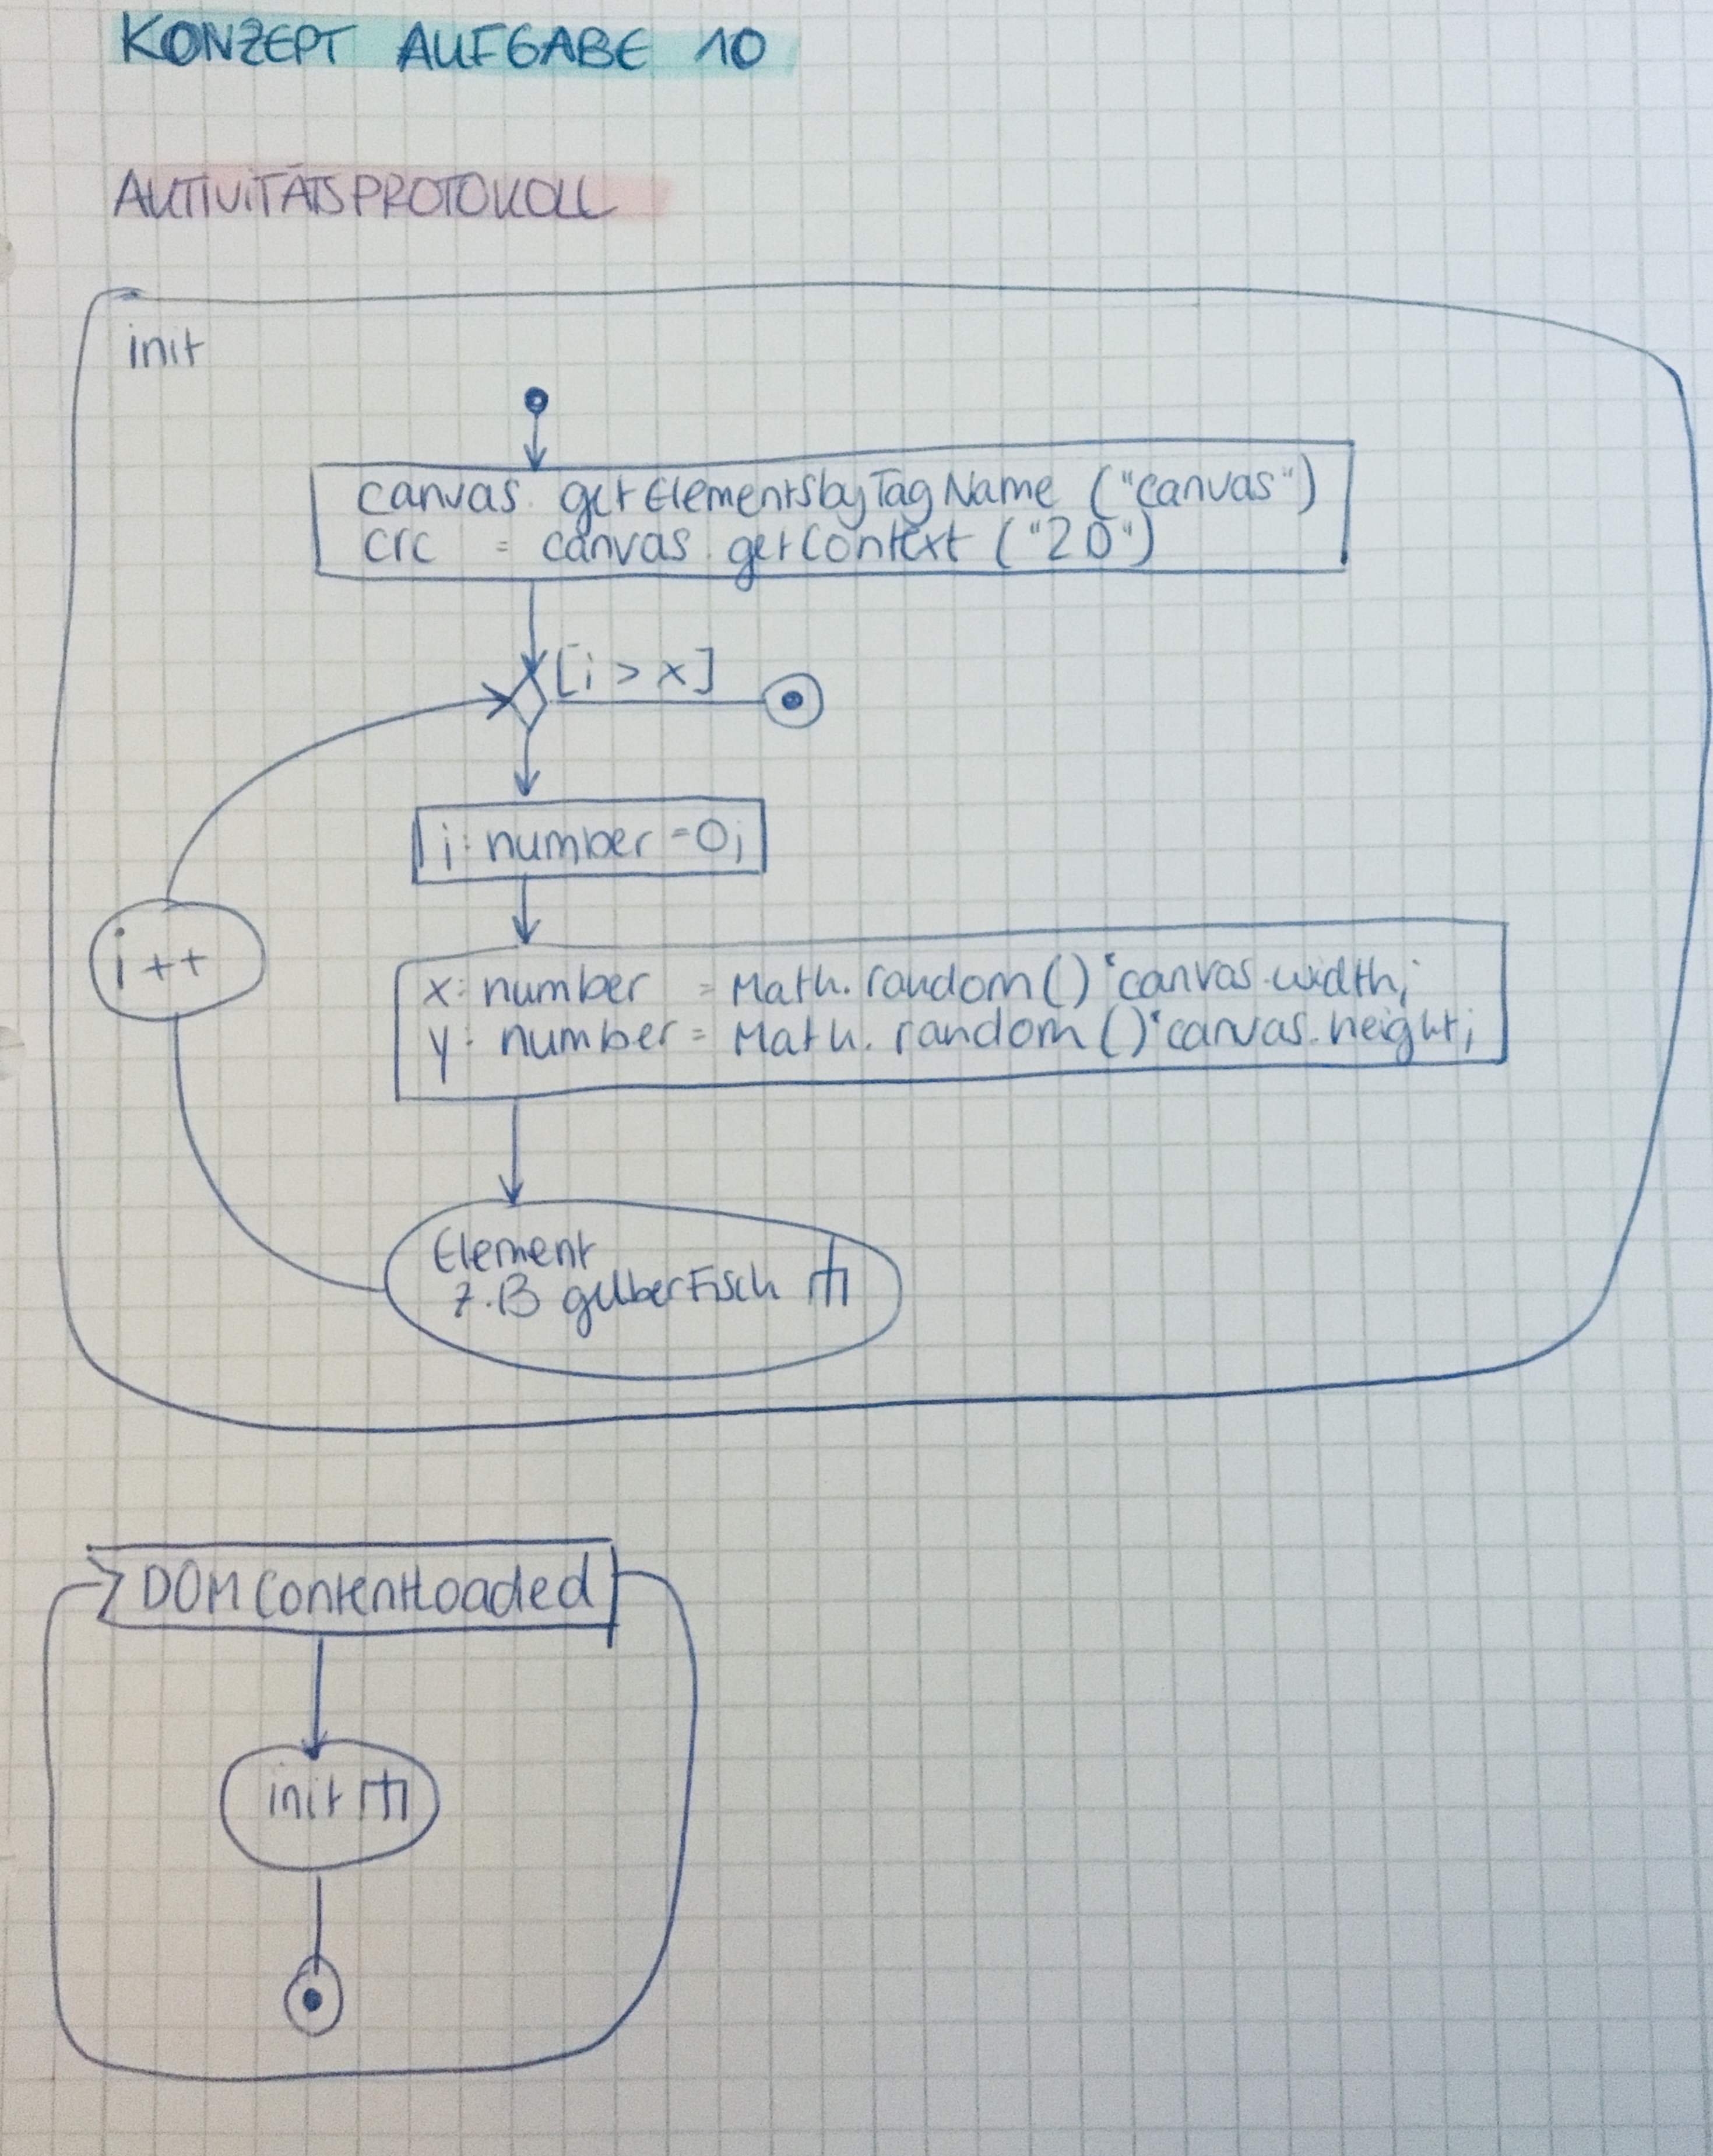 KONZEPT AUFGABE 10
AKTIVITÄTSPROTOKOLL
init
canvas. getElementsbyTagName ("canvas")
crc = canvas.getContext ("2D")
[i > x]
i: number =0;
i ++
x: number = Math.random()*canvas.width;
y: number = Math.random()*canvas.height;
Element
z.B gelberFisch
DOMContentLoaded
init